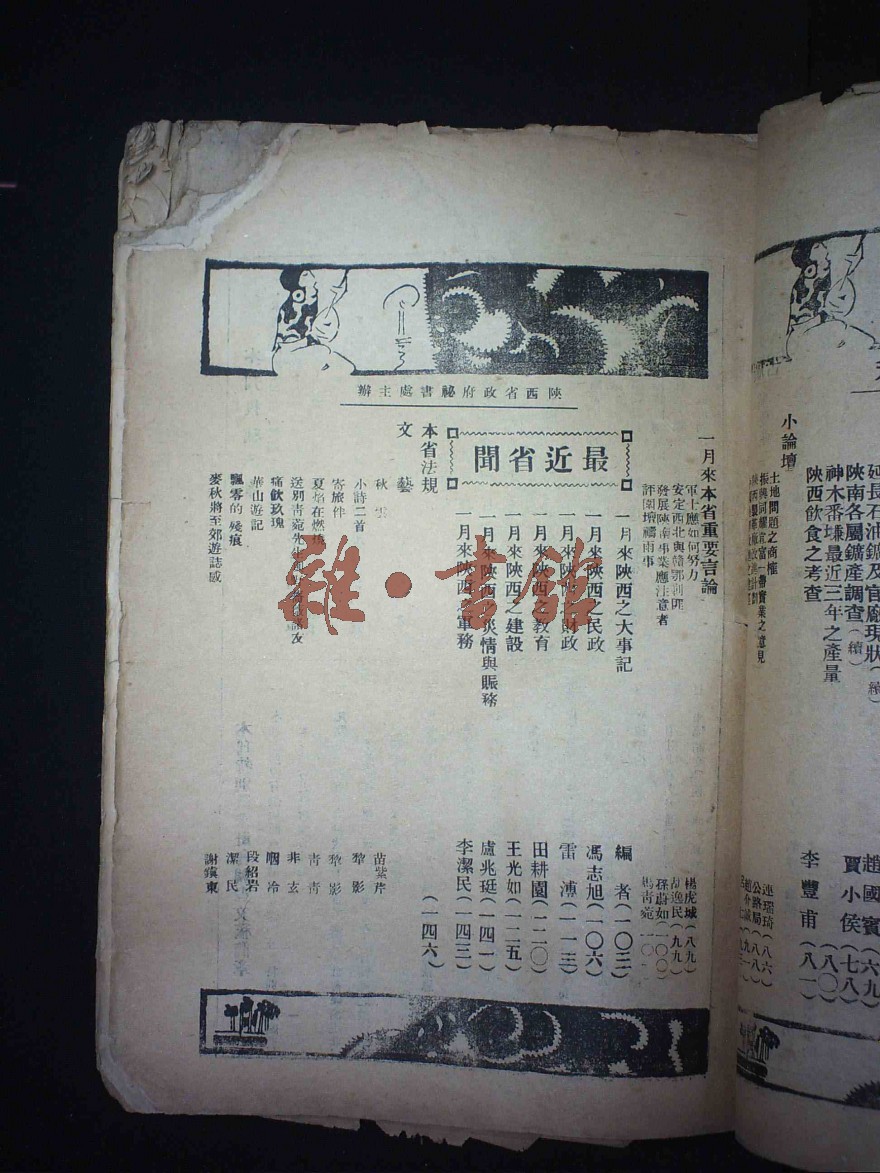 延長石油鑛及官廠現狀(續)
趙國賓(六九)
陝南各屬鑛產調查(續)
賈小侯(七八)
神木番壜最近三年之產量
(八〇)
陝西飲食之考查
李豐甫(八一)
小論壇
土地問題之商榷
連瑞琦(八六)
公路局(八八)
陝西省政府祕書處主辦
一月來本省重要言論
軍士應如何努力
楊虎城(八九)
安定西北與贛鄂剿匪
胡逸民(九九)
發展陝南事業應注意者
孫蔚如(一〇〇)
評園壇禱雨事
馮青菀
最近省聞
一月來陝西之大事記
編者(一〇三)
一月來陝西之民政
馮志旭(一〇六)
一月來陝西之財政
雷漙(一一三)
一月來陝西之教育
田耕園(一二〇)
一月來陝西之建設
王光如(一二五)
一月來陝西之災情與賑務
盧兆珽(一四一)
一月來陝西之軍務
李潔民(一四三)
本省法規
(一四六)
文藝
秋雲
苗紫芹
小詩二首
犂影
寄旅伴
犂影
夏焰在燃燒
青青
送別青菀先生
非玄
痛飲玖瑰
咽冷
華山遊記
段紹岩
飄零的殘痕
潔民
麥秋將至郊遊誌感
謝鎮東
雜·書館